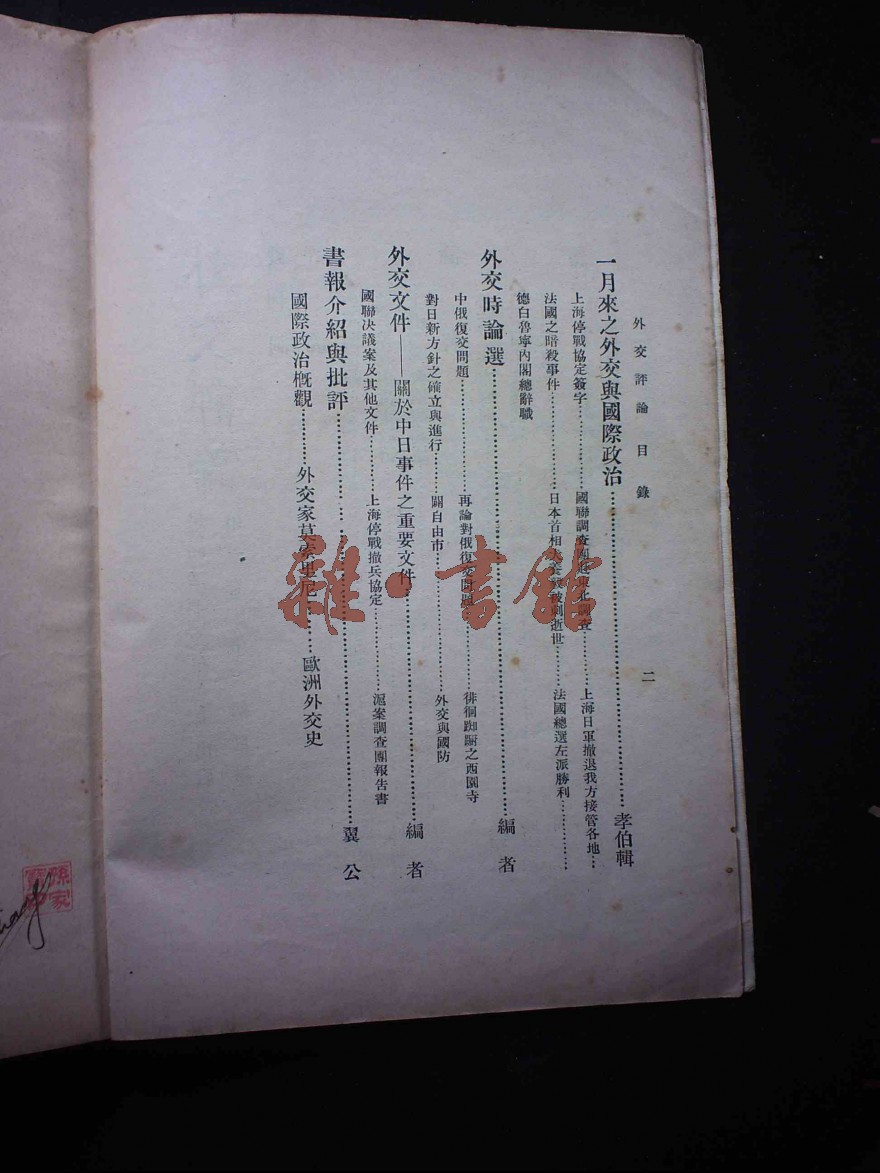 外交評論目錄 二
一月來之外交與國際政治……孝伯輯
上海停戰協定簽字……國聯調查團 東北調查……上海日軍撤退我方接管各地……
法國之暗殺事件……日本首相犬養毅被刺逝世……法國總選左派勝利……
德白魯寧內閣總辭職
外交時論選……編者
中俄復交問題……再論對俄復交問題……徘徊踟躕之西園寺
對日新方針之確立與進行……闢自由市……外交與國防
外交文件——關於中日事件之重要文件……編者
國聯決議案及其他文件……上海停戰撤兵協定……滬案調查團報告書
書報介紹與批評……翼公
國際政治概觀……外交家莫索里尼……歐洲外交史
雜·書館
孫家